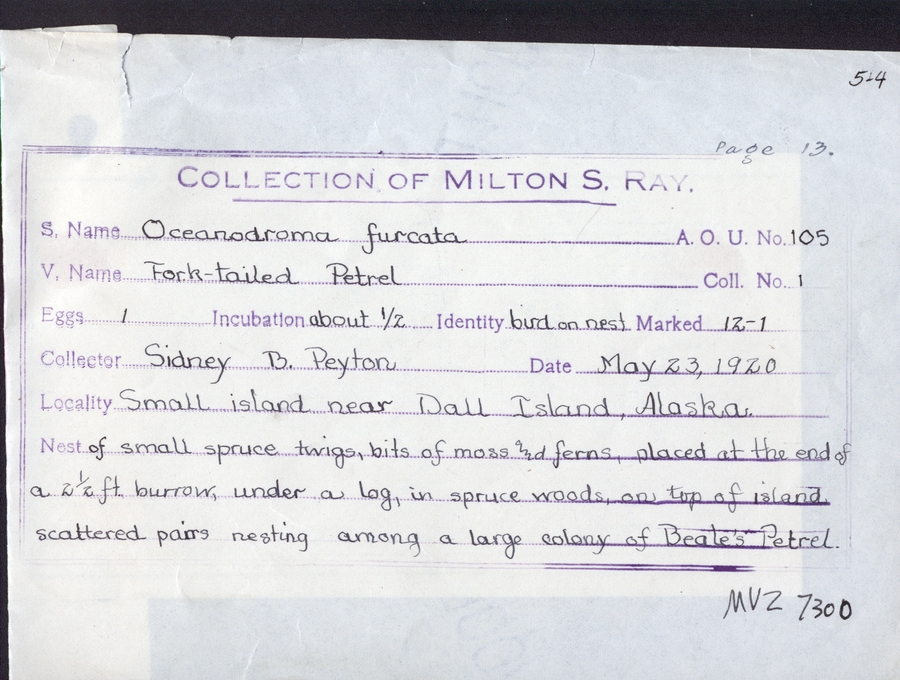 5-4
Page 13.
COLLECTION OF MILTON S. RAY.
S. Name Oceanodroma furcata A. O. U. No. 105
V. Name Fork-tailed Petrel Coll. No. 1
Eggs 1 Incubation about 1/2 Identity bird on nest Marked 12-1
Collector Sidney B. Peyton Date May 23, 1920
Locality Small island near Dall Island, Alaska.
Nest of small spruce twigs, bits of moss and ferns, placed at the end of
a 2½ ft. burrow, under a log, in spruce woods, on top of island.
scattered pairs nesting among a large colony of Beale's Petrel.
MVZ 7300